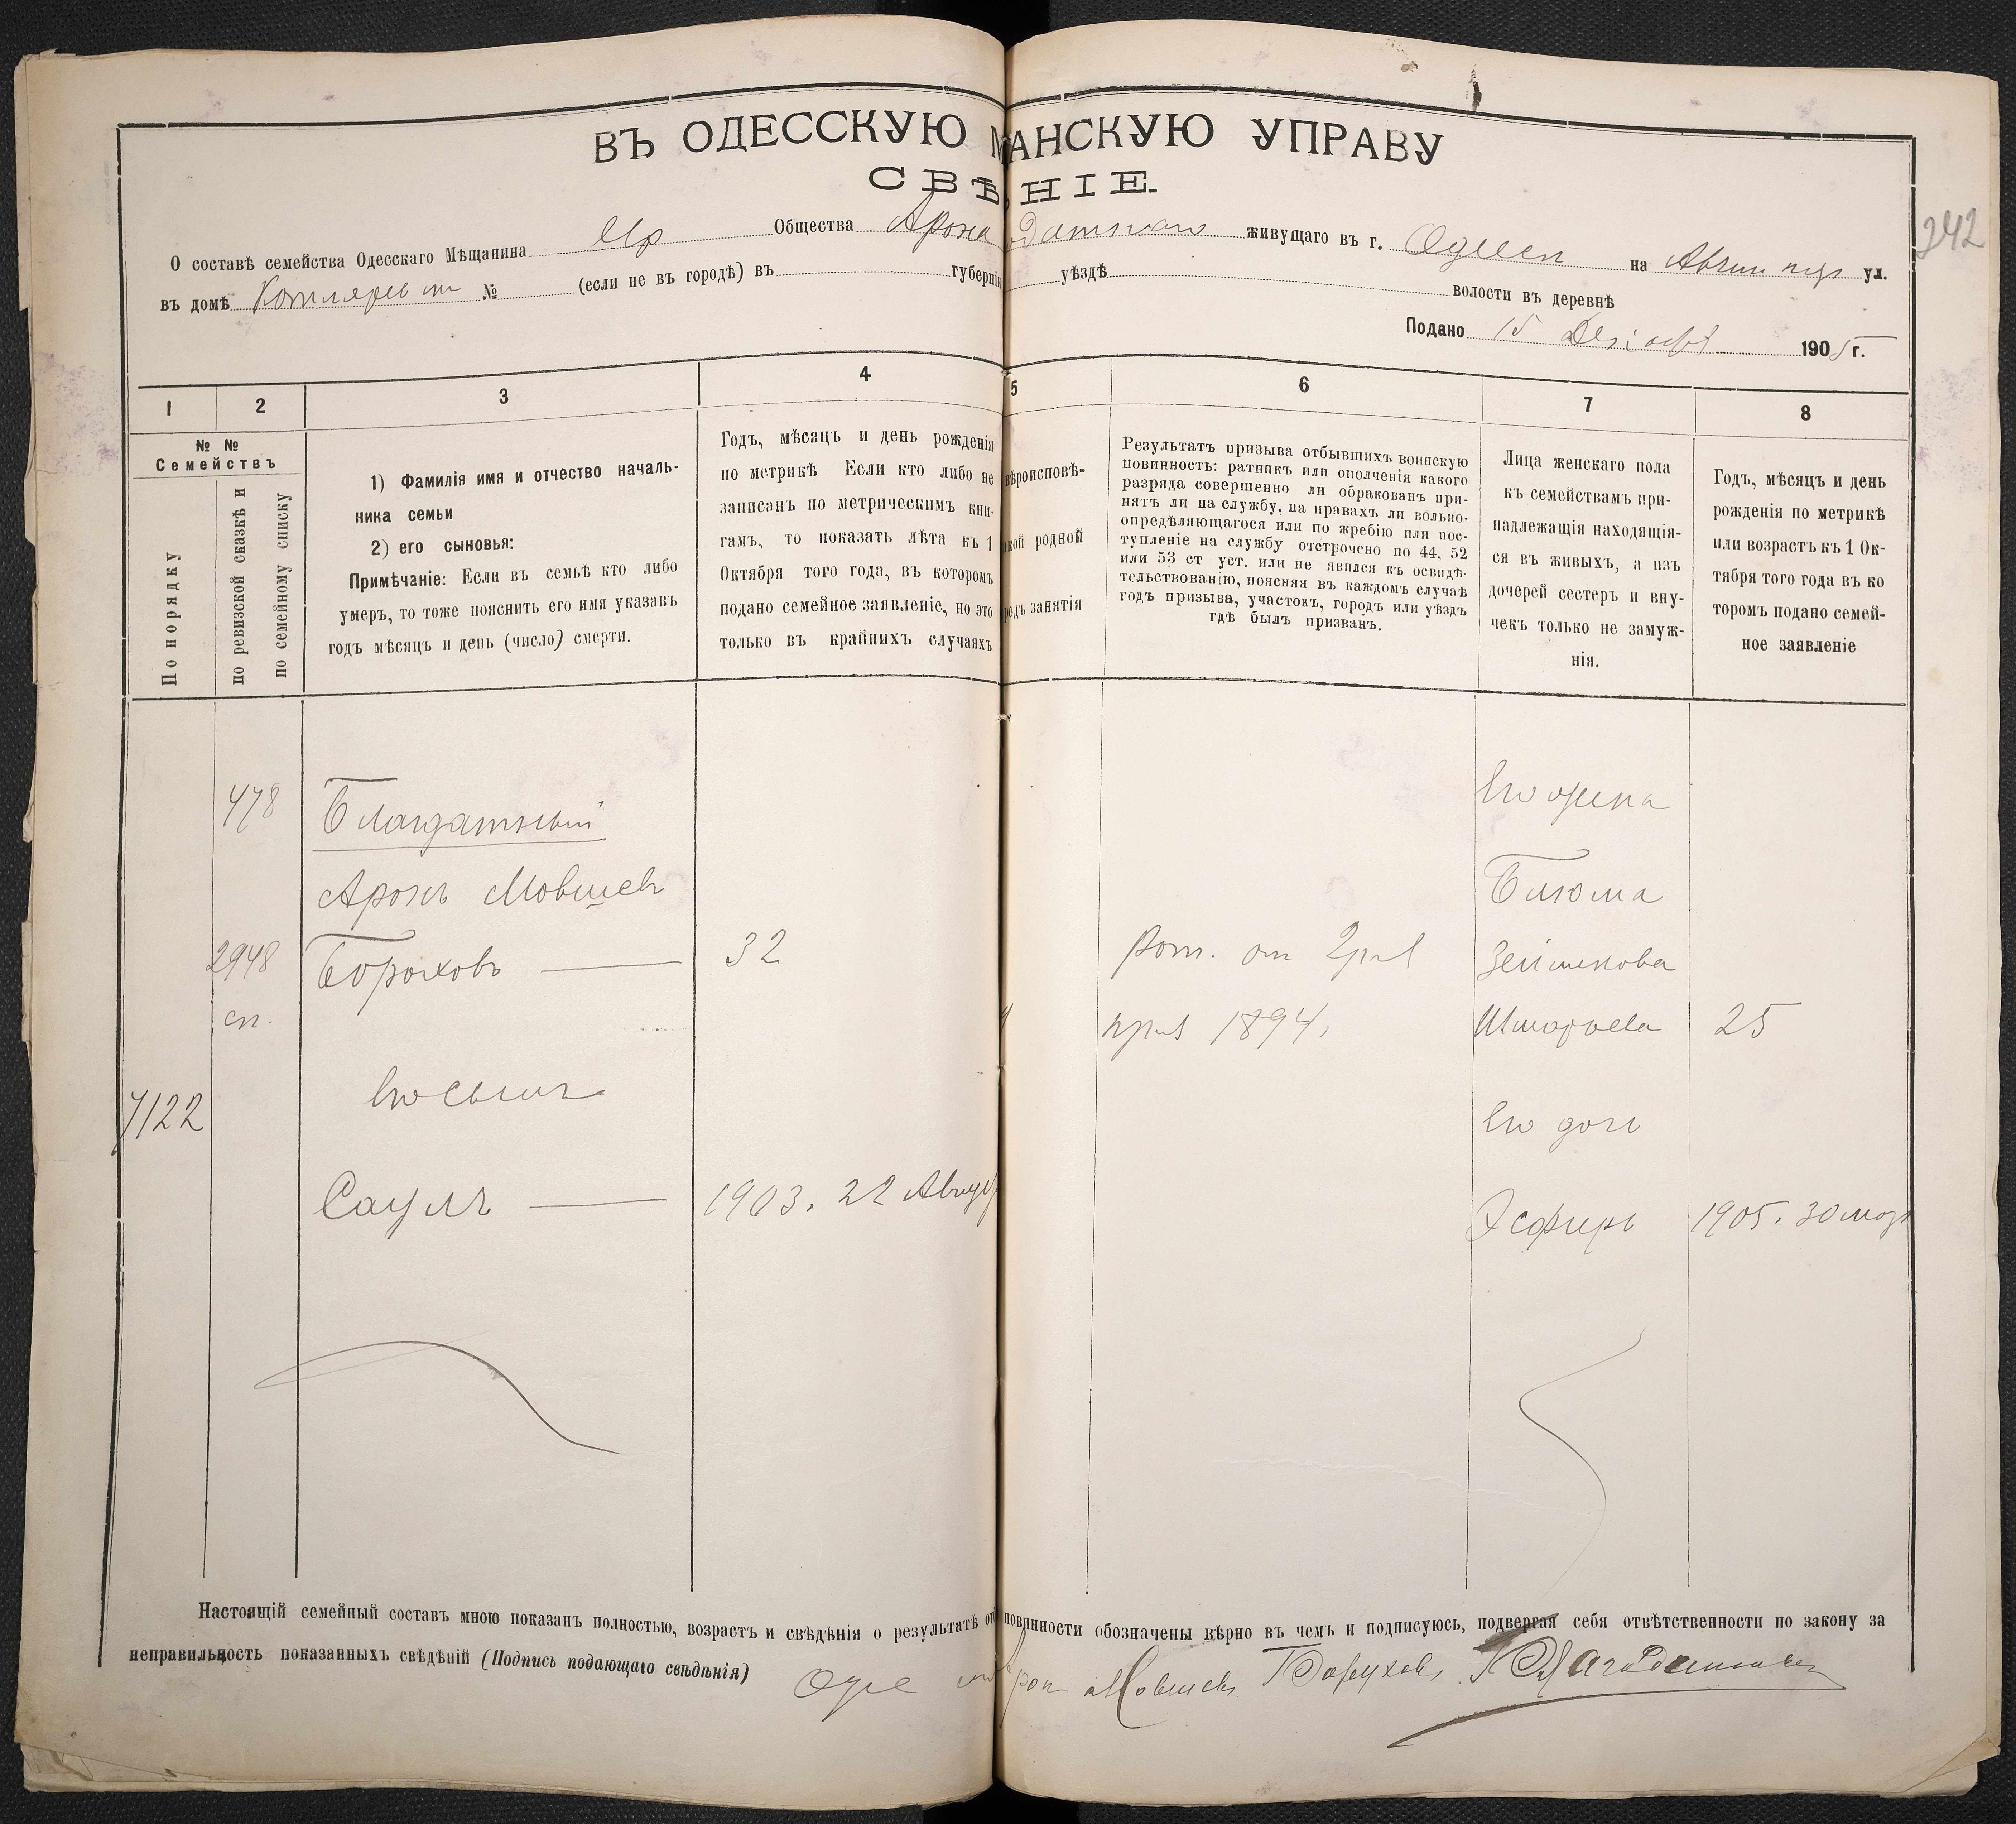 ВЪ ОДЕССКУЮ АНСКУЮ УПРАВУ
СВѢ НІЕ.
О составѣ семейства Одесскаго Мѣщанина Евр Общества Арона одатнаго живущаго въ г. Одессѣ на ул.
въ домѣ № (если не въ городѣ) въ губерніи уѣздѣ волости въ деревнѣ
Подано 15 Декабр 1905 г.
342
1 2 3 4 5 6 7 8
№ №
Семействъ
По порядку
по ревизской сказкѣ и
по семейному списку
1) Фамилія имя и отчество началь-
ника семьи
2) его сыновья:
Примѣчаніе: Если въ семьѣ кто либо
умеръ, то тоже пояснить его имя указавъ
годъ мѣсяцъ и день (число) смерти.
Годъ, мѣсяцъ и день рожденія
по метрикѣ Если кто либо не
записанъ по метрическимъ кни-
гамъ, то показать лѣта къ 1
Октября того года, въ которомъ
подано семейное заявленіе, но это
только въ крайнихъ случаяхъ
вѣроисповѣ-
акой родной
родъ занятія
Результатъ призыва отбывшихъ воинскую
повинность: ратникъ или ополченія какого
разряда совершенно ли обракованъ при-
нятъ ли на службу, на правахъ ли вольно-
опредѣляющагося или по жребію или пос-
тупленіе на службу отсрочено по 44, 52
или 53 ст уст. или не явился къ освидѣ-
тельствованію, поясняя въ каждомъ случаѣ
годъ призыва, участокъ, городъ или уѣздъ
гдѣ былъ призванъ.
Лица женскаго пола
къ семействамъ при-
надлежащія находящія-
ся въ живыхъ, а изъ
дочерей сестеръ и вну-
чекъ только не замуж-
нія.
Годъ, мѣсяцъ и день
рожденія по метрикѣ
или возрастъ къ 1 Ок-
тября того года въ ко
торомъ подано семей-
ное заявленіе
478 Благодатный Его жена
Аронъ Мовшев Блюма
2948 Бороховъ 32 Рат. оп 2 раз Зейликова
сп. приз 1894. Шмороева 25
Его сынъ
7122 Его дочь
Саулъ 1903. 22 Август Эсфирь 1905. 30 мар
Настоящій семейный составъ мною показанъ полностью, возрастъ и свѣдѣнія о результатѣ от повинности обозначены вѣрно въ чемъ и подписуюсь, подвергая себя отвѣтственности по закону за
неправильность показанныхъ свѣдѣній (Подпись подающаго свѣдѣнія) Оде рон Мовшевъ Боруховъ Благодатный